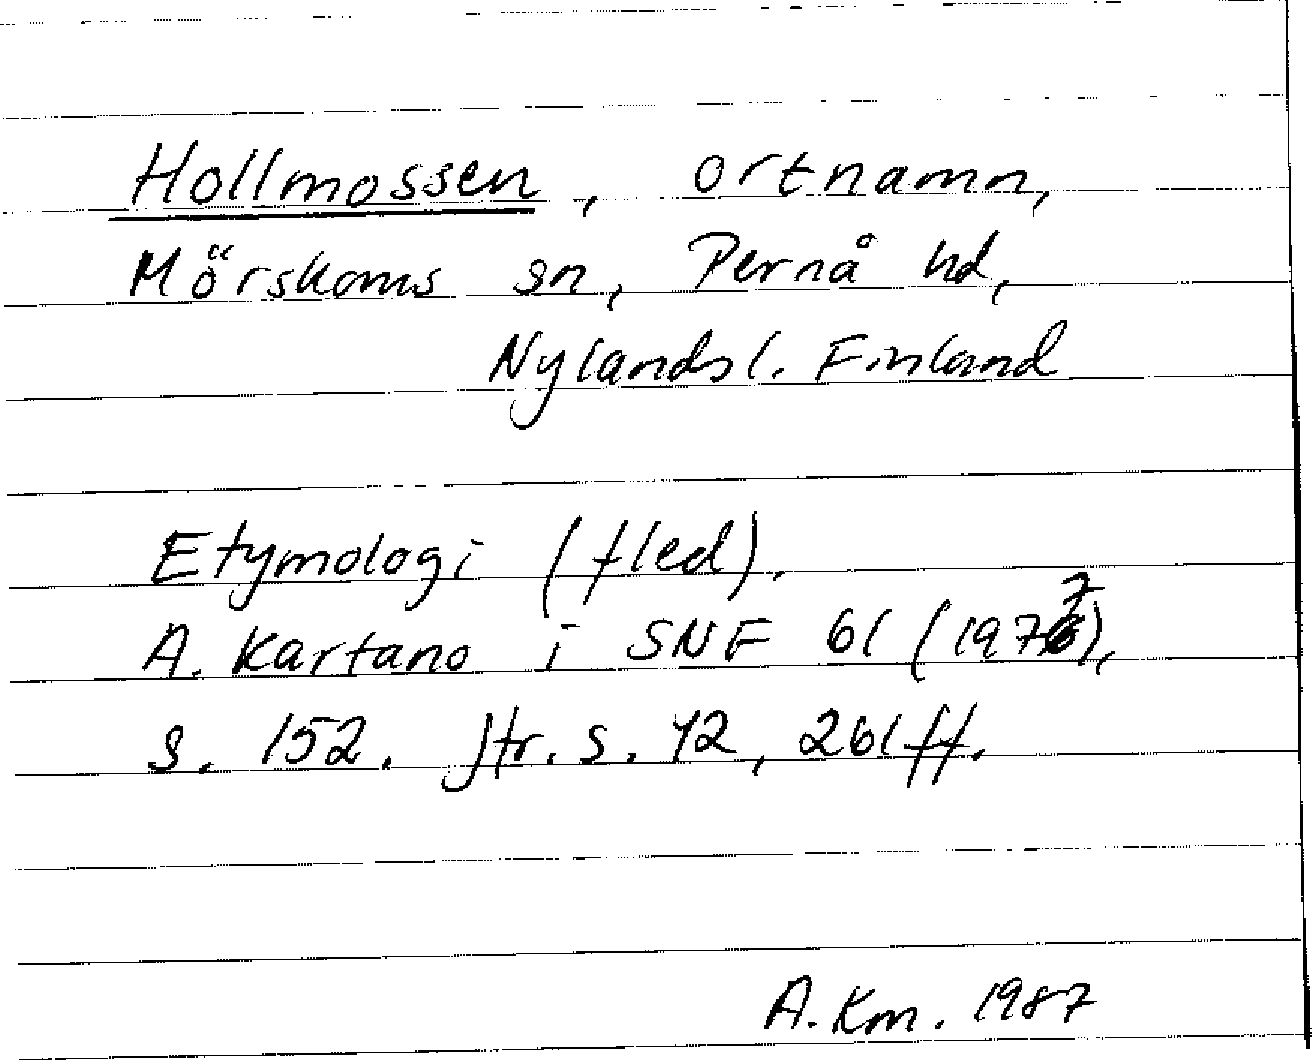 Hollmossen, ortnamn,
Mörskoms sn, Pernå hd,
Nylandsl. Finland
Etymologi (fled).
A. Kartano i SNF 61 (1977),
s. 152. Jfr. s. 42, 261ff.
A. Km. 1987